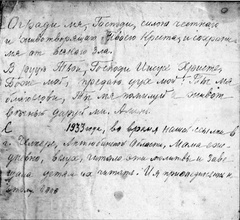 Огради мя, Господи, силою честнаго
и животворящаго Твоего Креста, и сохрани
мя от всякого зла.
В руце Твои, Господи Иисусе Христе,
Боже мой, предаю дух мой. Ты мя
благослови, Ты мя помилуй и живот
вечный даруй ми. Аминь.
С 1933 года, во время нашей ссылки в
области, Мама
вслух, читала эти молитвы и
детям их читать. И я